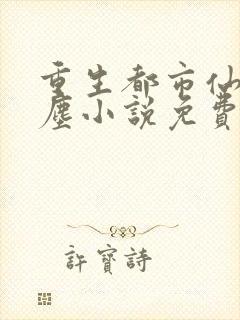 重生都市仙
塵小說免費
許寶詩